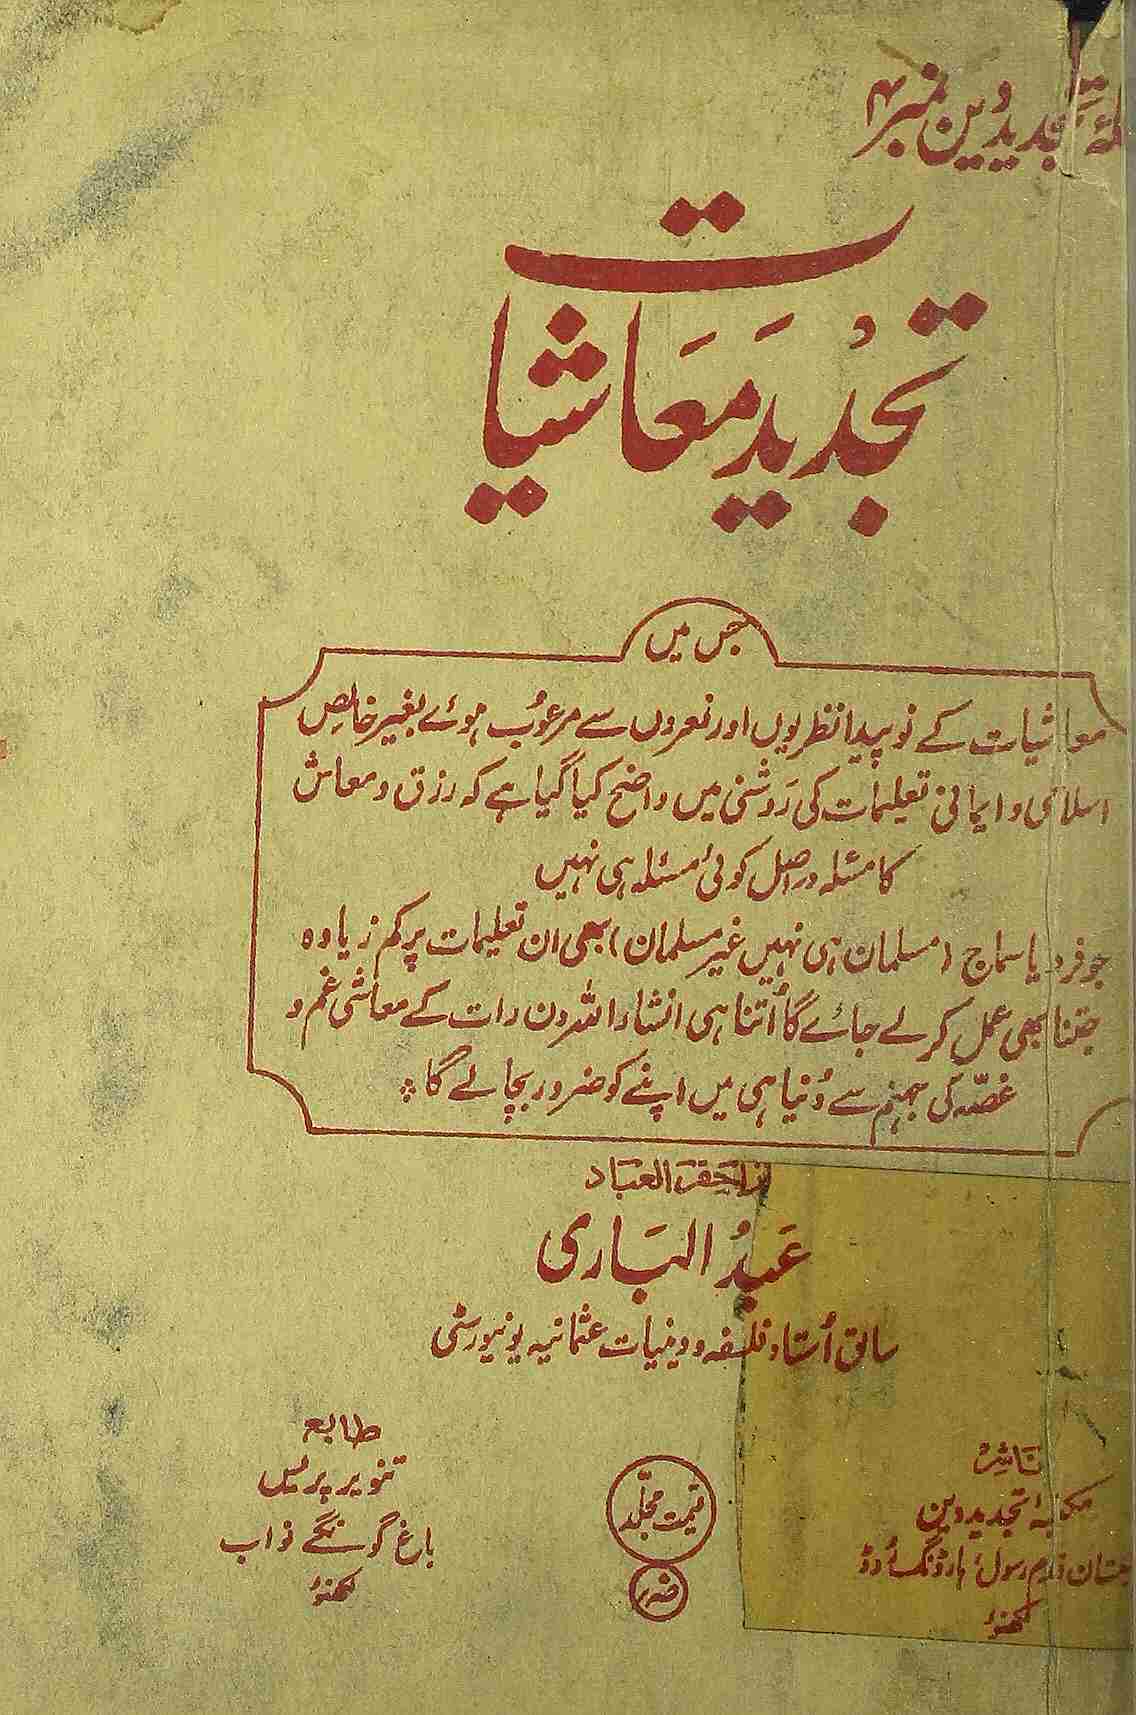 تجدید دین نمبر ۴
تجدید معاشیات
جس میں
معاشیات کے نو پیدا نظریوں اور نعروں سے مرعوب ہوئے بغیر خالص
اسلامی و ایمانی تعلیمات کی روشنی میں واضح کیا گیا ہے کہ رزق و معاش
کا مسئلہ دراصل کوئی مسئلہ ہی نہیں
جو فرد یا سماج (مسلمان ہی نہیں غیر مسلمان) بھی ان تعلیمات پر کم زیادہ
جتنا بھی عمل کر لے جائے گا اُتنا ہی انشاء اللہ دن رات کے معاشی غم و
غصّہ کی جہنم سے دُنیا ہی میں اپنے کو ضرور بچا لے گا
از احقر العباد
عَبدُ البَاری
سابق اُستاد فلسفہ و دینیات عثمانیہ یونیورسٹی
ناشر
مکتبۂ تجدید دین
قدم رسول ہارڈنگ روڈ
لکھنؤ
قیمت مجلّد
طابع
تنویر پریس
باغ گونگے نواب
لکھنؤ